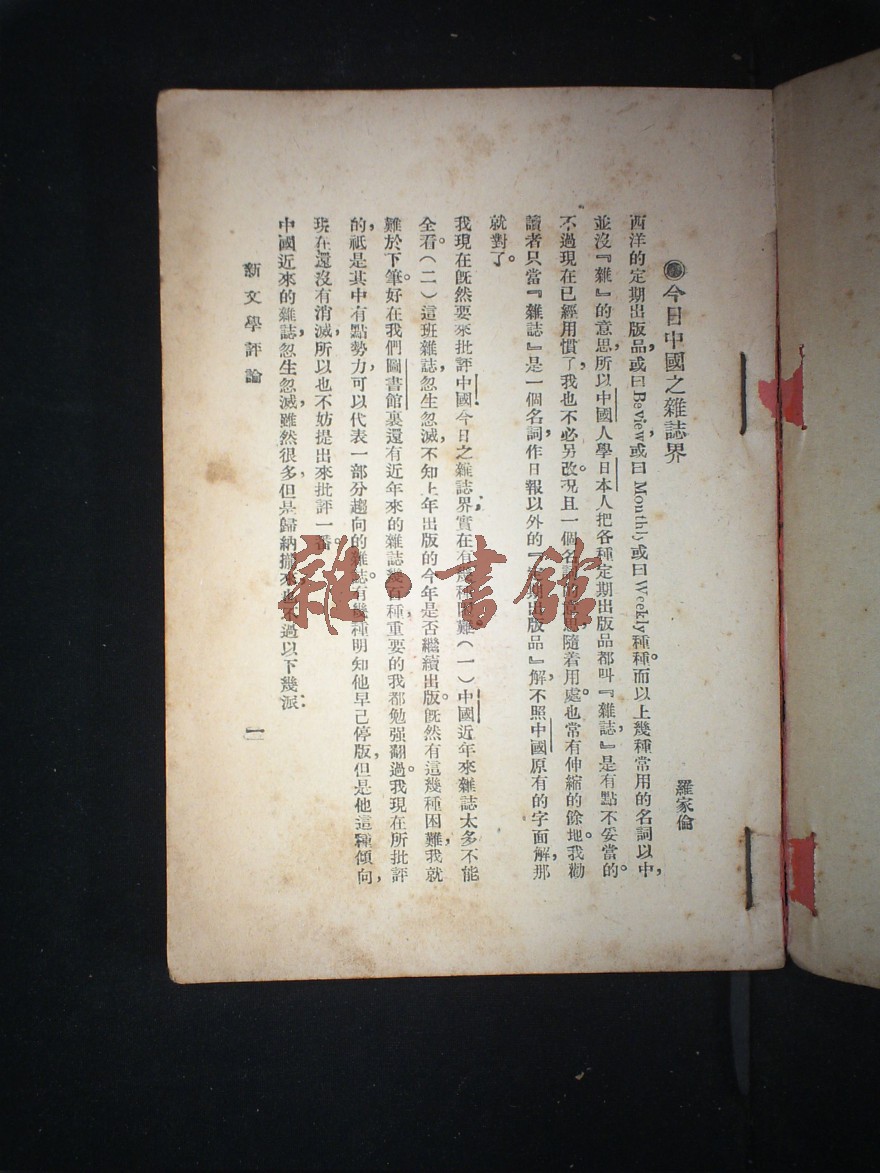 今日中國之雜誌界
羅家倫
西洋的定期出版品,或曰Review,或曰Monthly或曰Weekly種種。而以上幾種常用的名詞以中,
並沒『雜』的意思,所以中國人學日本人把各種定期出版品都叫『雜誌,』是有點不妥當的。
不過現在已經用慣了,我也不必另改。况且一個名詞的意思,隨着用處。也常有伸縮的餘地。我勸
讀者只當『雜誌』是一個名詞,作日報以外的『定期出版品』解,不照中國原有的字面解,那
就對了。
我現在旣然要來批評中國今日之雜誌界;實在有幾種困難。(一)中國近年來雜誌太多不能
全看。(二)這班雜誌,忽生忽滅,不知上年出版的今年是否繼續出版。旣然有這幾種困難,我就
難於下筆。好在我們圖書館裏還有近年來的雜誌幾百種,重要的我都勉强翻過。我現在所批評
的,祇是其中有點勢力,可以代表一部分趨向的雜誌。有幾種明知他早已停版,但是他這種傾向,
現在還沒有消滅,所以也不妨提出來批評一番。
中國近來的雜誌,忽生忽滅,雖然很多,但是歸納攏來也不過以下幾派:
新文學評論
一
雜·書館